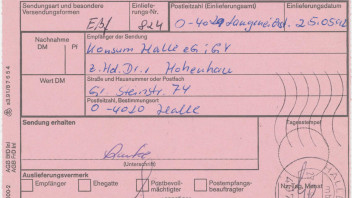 Sendungsart und besondere Versendungsformen
Einlieferungs-Nr.
Postleitzahl (Einlieferungsamt)
E/Bf 824 O-4020 25.05.92
Nachnahme
DM Pf
Empfänger der Sendung
Konsum Halle eG i.GV
z.Hd. Dr. Hohenhau
Straße und Hausnummer oder Postfach
Gr. Steinstr. 74
DM
Postleitzahl, Bestimmungsort
O-4020 Halle
Sendung erhalten
Tagesstempel
(Unterschrift)
Auslieferungsvermerk
Nr.
Empfänger
Ehegatte
Postbevollmächtigter
Postempfangsbeauftragter